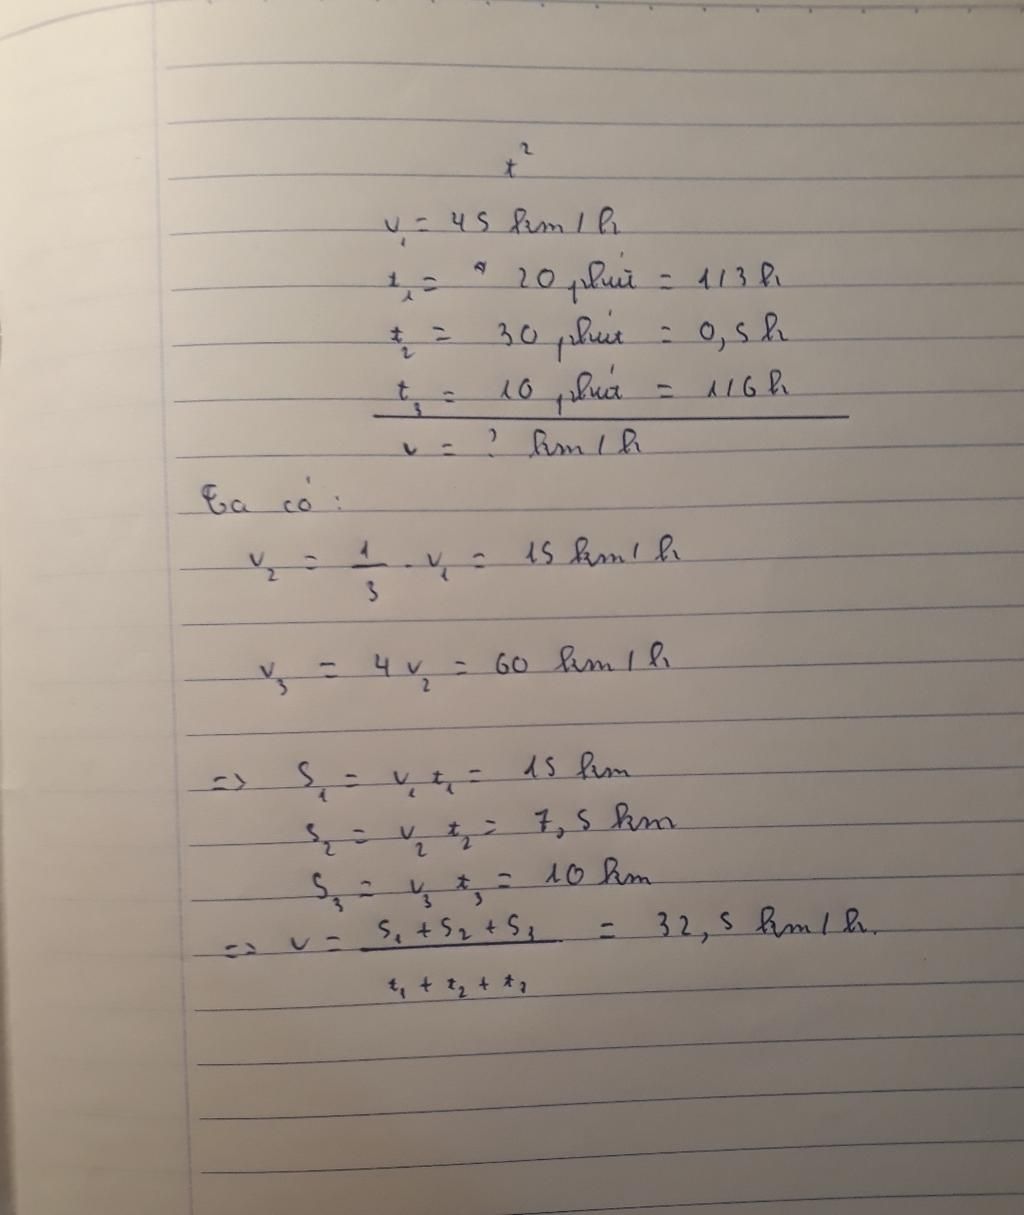 t²
v₁ = 45 km/h
t₁ = 20 phút = 1/3 h
t₂ = 30 phút = 0,5 h
t₃ = 10 phút = 1/6 h
v = ? km/h
Ta có:
v₂ = 1/3 . v₁ = 15 km/h
v₃ = 4 v₂ = 60 km/h
=> S₁ = v₁ t₁ = 15 km
S₂ = v₂ t₂ = 7,5 km
S₃ = v₃ t₃ = 10 km
=> v = (S₁ + S₂ + S₃)/(t₁ + t₂ + t₃) = 32,5 km/h.